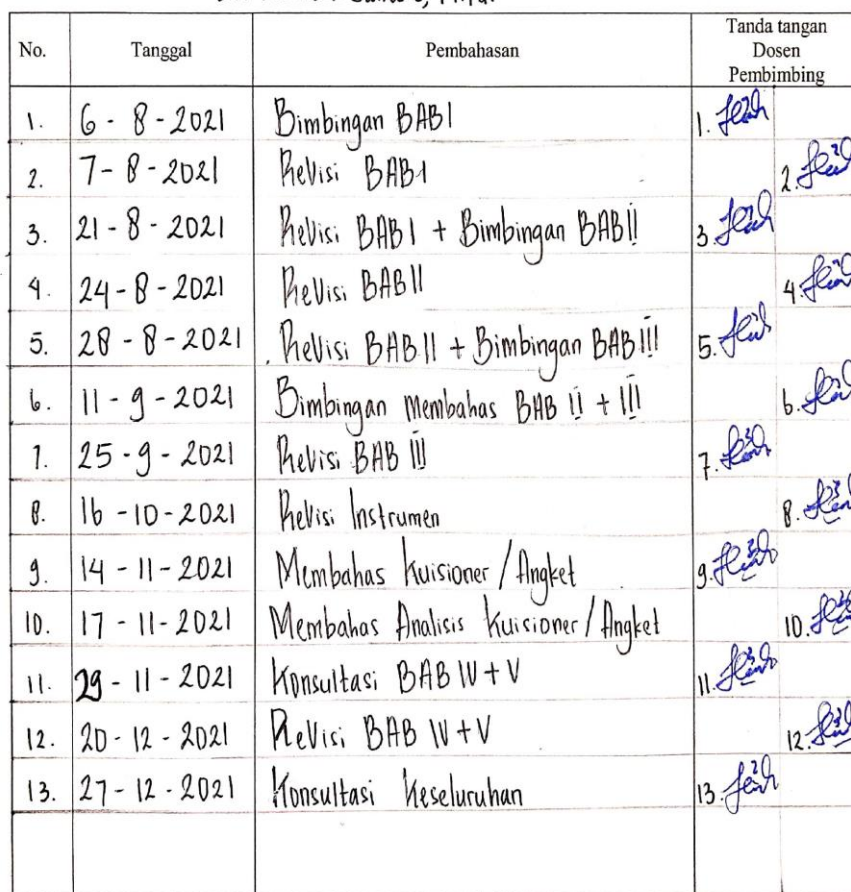 No. Tanggal Pembahasan Tanda tangan
Dosen
Pembimbing
1. 6 - 8 - 2021 Bimbingan BAB I 1.
2. 7 - 8 - 2021 Revisi BAB I 2.
3. 21 - 8 - 2021 Revisi BAB I + Bimbingan BAB II 3.
4. 24 - 8 - 2021 Revisi BAB II 4.
5. 28 - 8 - 2021 Revisi BAB II + Bimbingan BAB III 5.
6. 11 - 9 - 2021 Bimbingan Membahas BAB II + III 6.
7. 25 - 9 - 2021 Revisi BAB III 7.
8. 16 - 10 - 2021 Revisi Instrumen 8.
9. 14 - 11 - 2021 Membahas Kuisioner / Angket 9.
10. 17 - 11 - 2021 Membahas Analisis Kuisioner / Angket 10.
11. 29 - 11 - 2021 Konsultasi BAB IV + V 11.
12. 20 - 12 - 2021 Revisi BAB IV + V 12.
13. 27 - 12 - 2021 Konsultasi Keseluruhan 13.